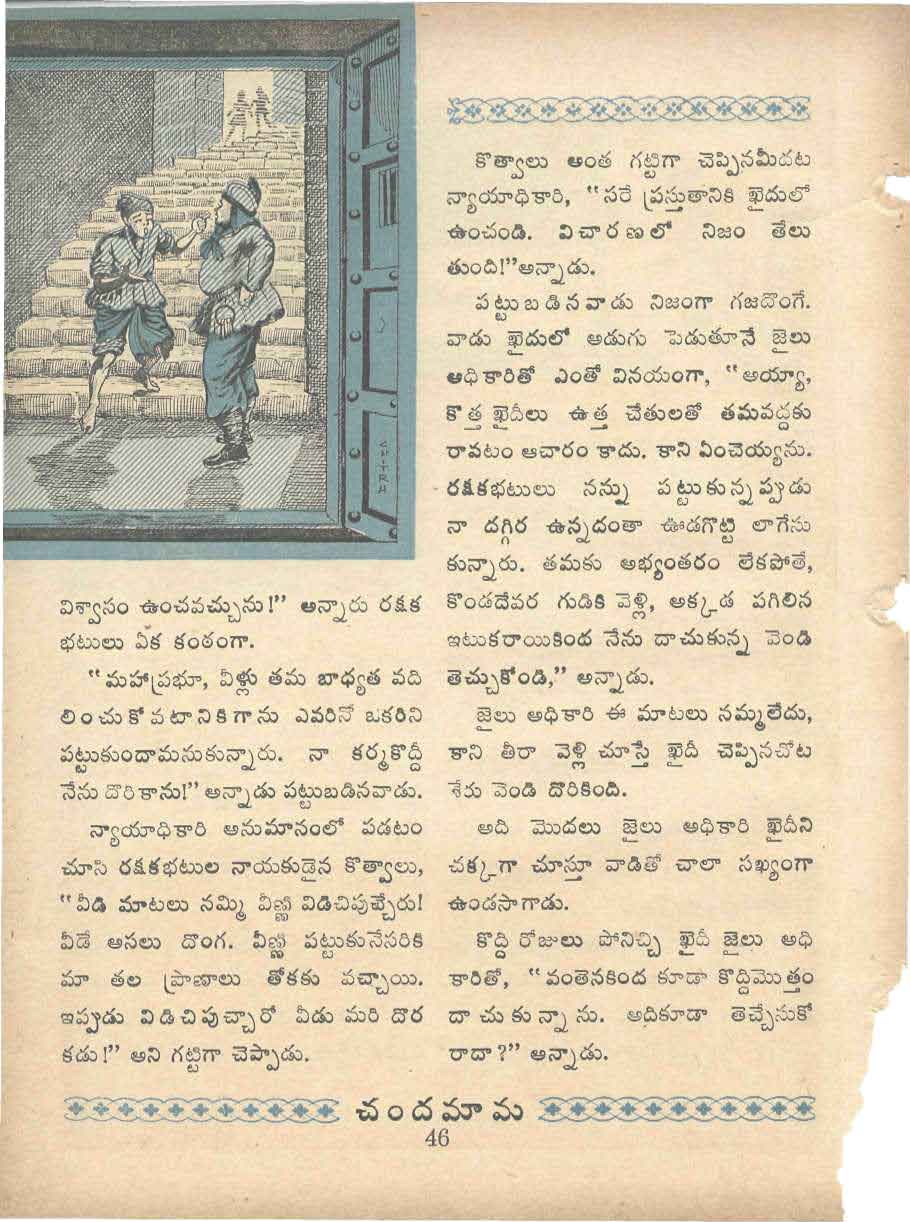 CHITRA
విశ్వాసం ఉంచవచ్చును!" అన్నారు రక్షక
భటులు ఏక కంఠంగా.
"మహాప్రభూ, వీళ్లు తమ బాధ్యత వది
లించుకోవటానికిగాను ఎవరినో ఒకరిని
పట్టుకుందామనుకున్నారు. నా కర్మకొద్దీ
నేను దొరికాను!" అన్నాడు పట్టుబడినవాడు.
న్యాయాధికారి అనుమానంలో పడటం
చూసి రక్షకభటుల నాయకుడైన కొత్వాలు,
"వీడి మాటలు నమ్మి వీణ్ణి విడిచిపుచ్చేరు!
వీడే అసలు దొంగ. వీణ్ణి పట్టుకునేసరికి
మా తల ప్రాణాలు తోకకు వచ్చాయి.
ఇప్పుడు విడిచిపుచ్చారో వీడు మరి దొర
కడు!" అని గట్టిగా చెప్పాడు.
కొత్వాలు అంత గట్టిగా చెప్పినమీదట
న్యాయాధికారి, "సరే ప్రస్తుతానికి ఖైదులో
ఉంచండి. విచారణలో నిజం తేలు
తుంది!"అన్నాడు.
పట్టుబడినవాడు నిజంగా గజదొంగే.
వాడు ఖైదులో అడుగు పెడుతూనే జైలు
అధికారితో ఎంతో వినయంగా, "అయ్యా,
కొత్త ఖైదీలు ఉత్త చేతులతో తమవద్దకు
రావటం ఆచారం కాదు. కాని ఏంచెయ్యను.
రక్షకభటులు నన్ను పట్టుకున్నప్పుడు
నా దగ్గిర ఉన్నదంతా ఊడగొట్టి లాగేసు
కున్నారు. తమకు అభ్యంతరం లేకపోతే,
కొండదేవర గుడికి వెళ్లి, అక్కడ పగిలిన
ఇటుకరాయికింద నేను దాచుకున్న వెండి
తెచ్చుకోండి," అన్నాడు.
జైలు అధికారి ఈ మాటలు నమ్మలేదు,
కాని తీరా వెళ్లి చూస్తే ఖైదీ చెప్పినచోట
శేరు వెండి దొరికింది.
అది మొదలు జైలు అధికారి ఖైదీని
చక్కగా చూస్తూ వాడితో చాలా సఖ్యంగా
ఉండసాగాడు.
కొద్ది రోజులు పోనిచ్చి ఖైదీ జైలు అధి
కారితో, "వంతెనకింద కూడా కొద్దిమొత్తం
దాచుకున్నాను. అదికూడా తెచ్చేసుకో
రాదా?" అన్నాడు.
చందమామ
46